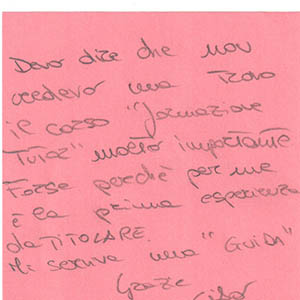 Devo dire che non
credevo ma trovo
il corso "formazione
Tutor" molto importante
Forse perchè per me
è la prima esperienza
da TITOLARE.
Mi serviva una "GUIDA"
Grazie